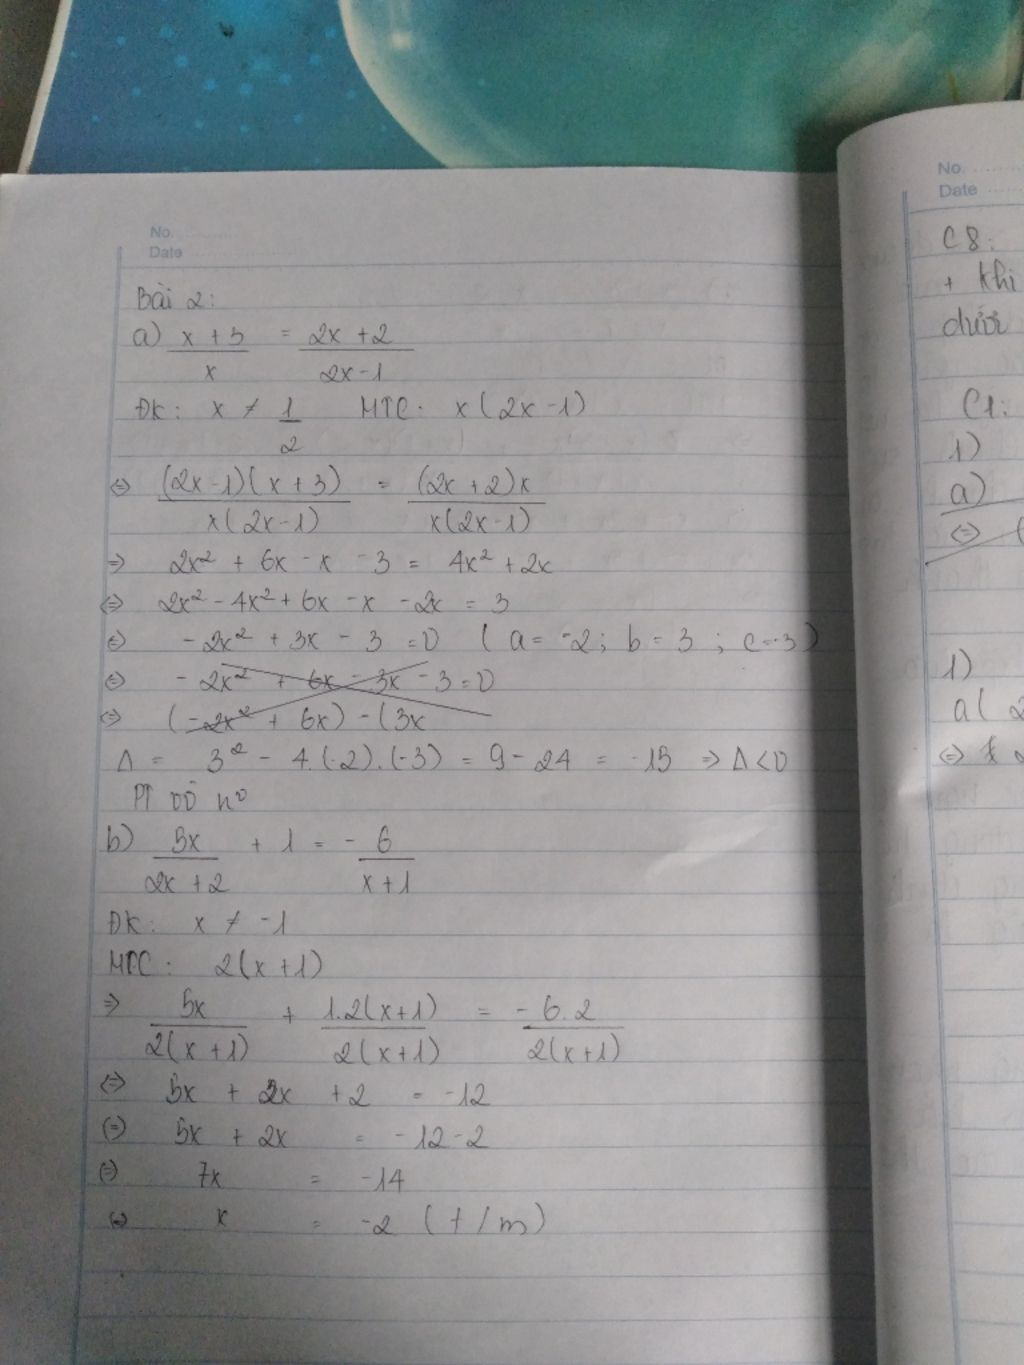 No.
Date
Bài 2:
a) x + 3 = 2x + 2
x 2x - 1
ĐK: x ≠ 1 MTC: x(2x - 1)
2
⇔ (2x - 1)(x + 3) = (2x + 2)x
x(2x - 1) x(2x - 1)
⇒ 2x² + 6x - x - 3 = 4x² + 2x
⇔ 2x² - 4x² + 6x - x - 2x = 3
⇔ - 2x² + 3x - 3 = 0 (a = -2; b = 3; c = -3)
⇔ - 2x² + 6x - 3x - 3 = 0
⇔ (-2x² + 6x) - (3x
Δ = 3² - 4.(-2).(-3) = 9 - 24 = -15 ⇒ Δ < 0
PT vô n⁰
b) 5x + 1 = - 6
2x + 2 x + 1
ĐK: x ≠ -1
MTC: 2(x + 1)
⇒ 5x + 1.2(x + 1) = - 6.2
2(x + 1) 2(x + 1) 2(x + 1)
⇔ 5x + 2x + 2 = -12
⇔ 5x + 2x = -12 - 2
⇔ 7x = -14
⇔ x = -2 (t/m)
No.
Date
C8:
+ khi
dưới
C1:
1)
a)
⇔ (
1)
a( 2
⇔